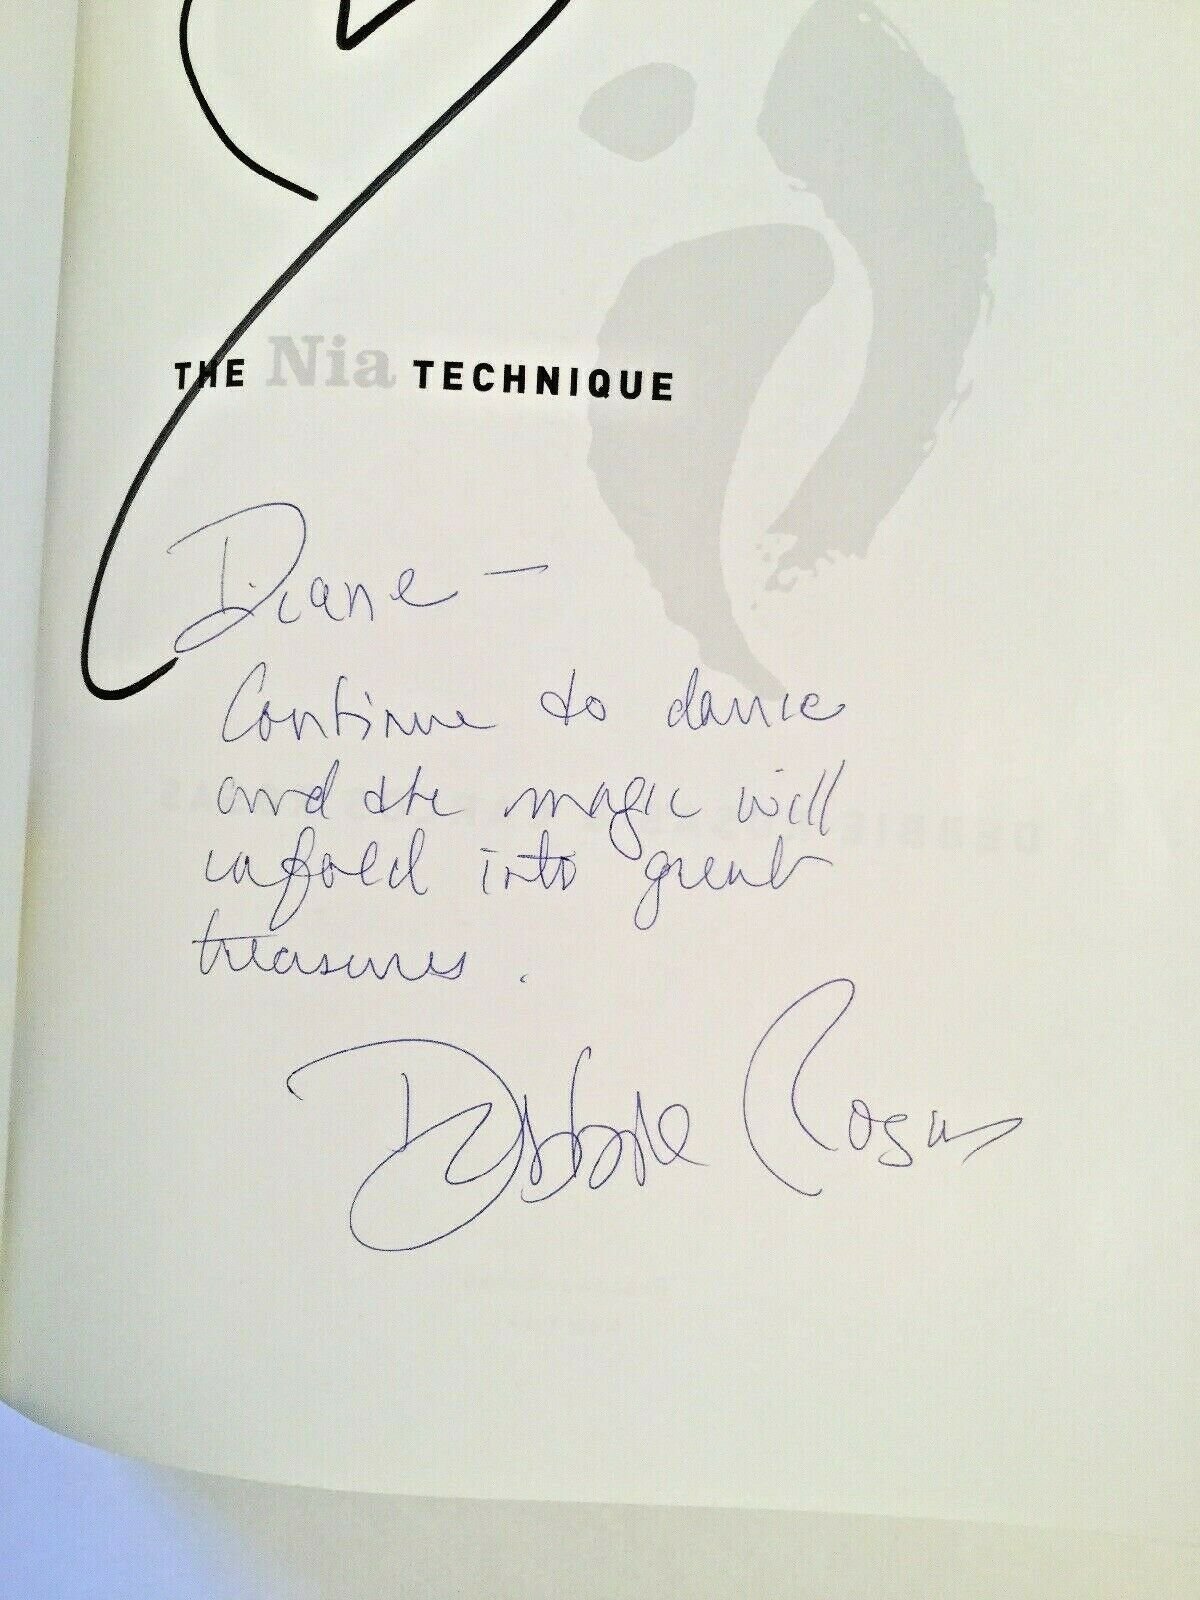 THE Nia TECHNIQUE
Diane —
Continue to dance
and the magic will
unfold into great
treasures.
Debbie Rosas